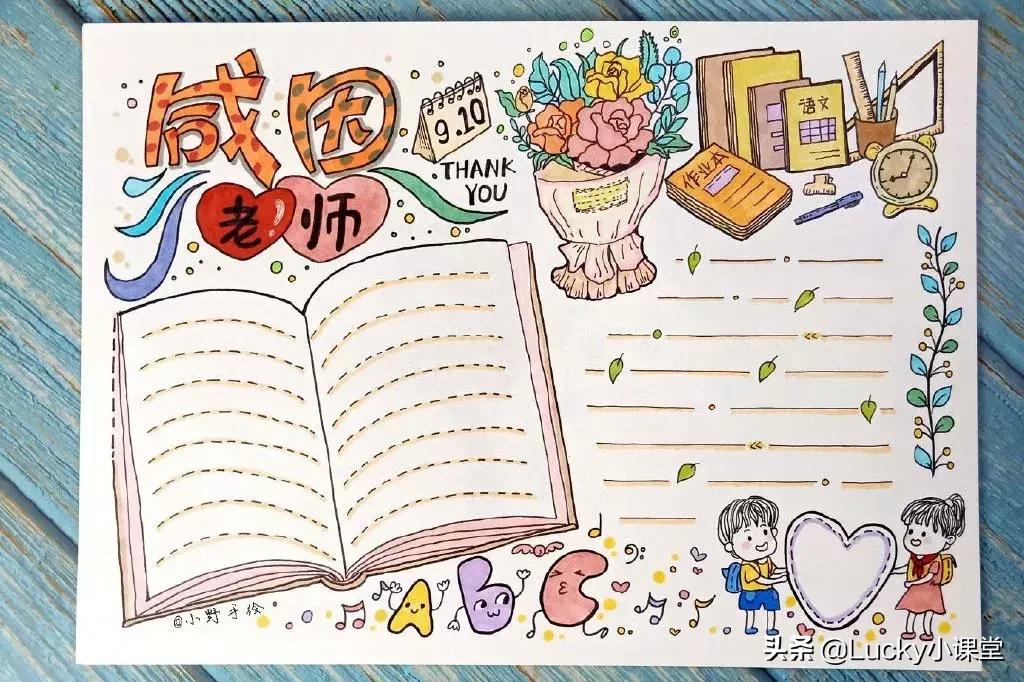 感因
老师
9.10
THANK
YOU
语文
作业本
ABC
@小野手绘
头条 @Lucky小课堂